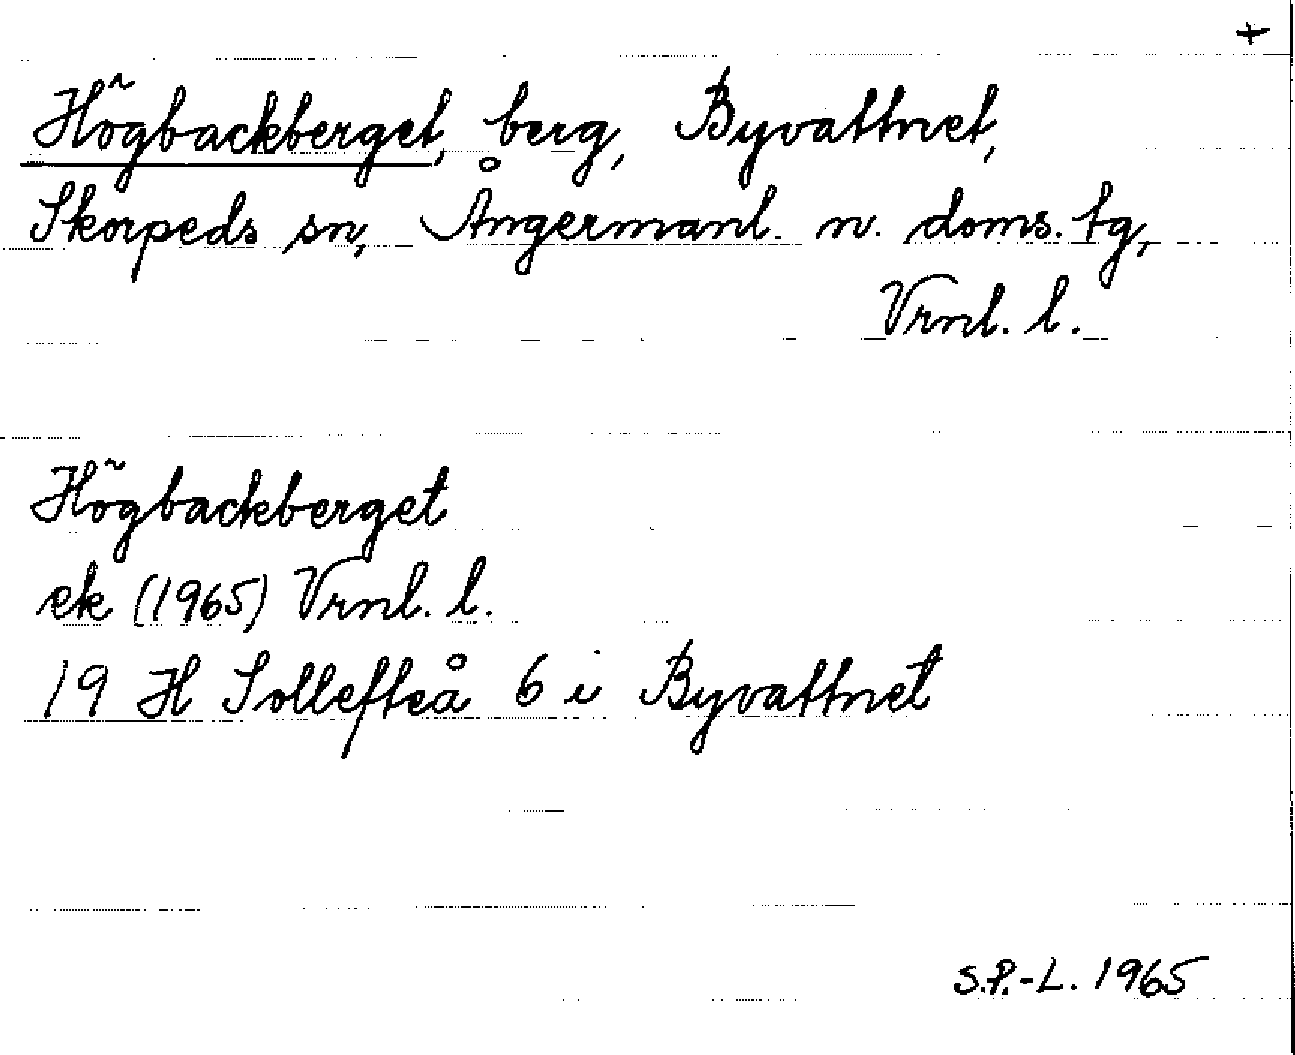 +
Högbackberget, berg, Byvattnet,
Skorpeds sn, Ångermanl. n. doms. tg,
Vrnl. l.
Högbackberget
ek (1965) Vrnl. l.
19 H Sollefteå 6 i Byvattnet
S.P.-L. 1965